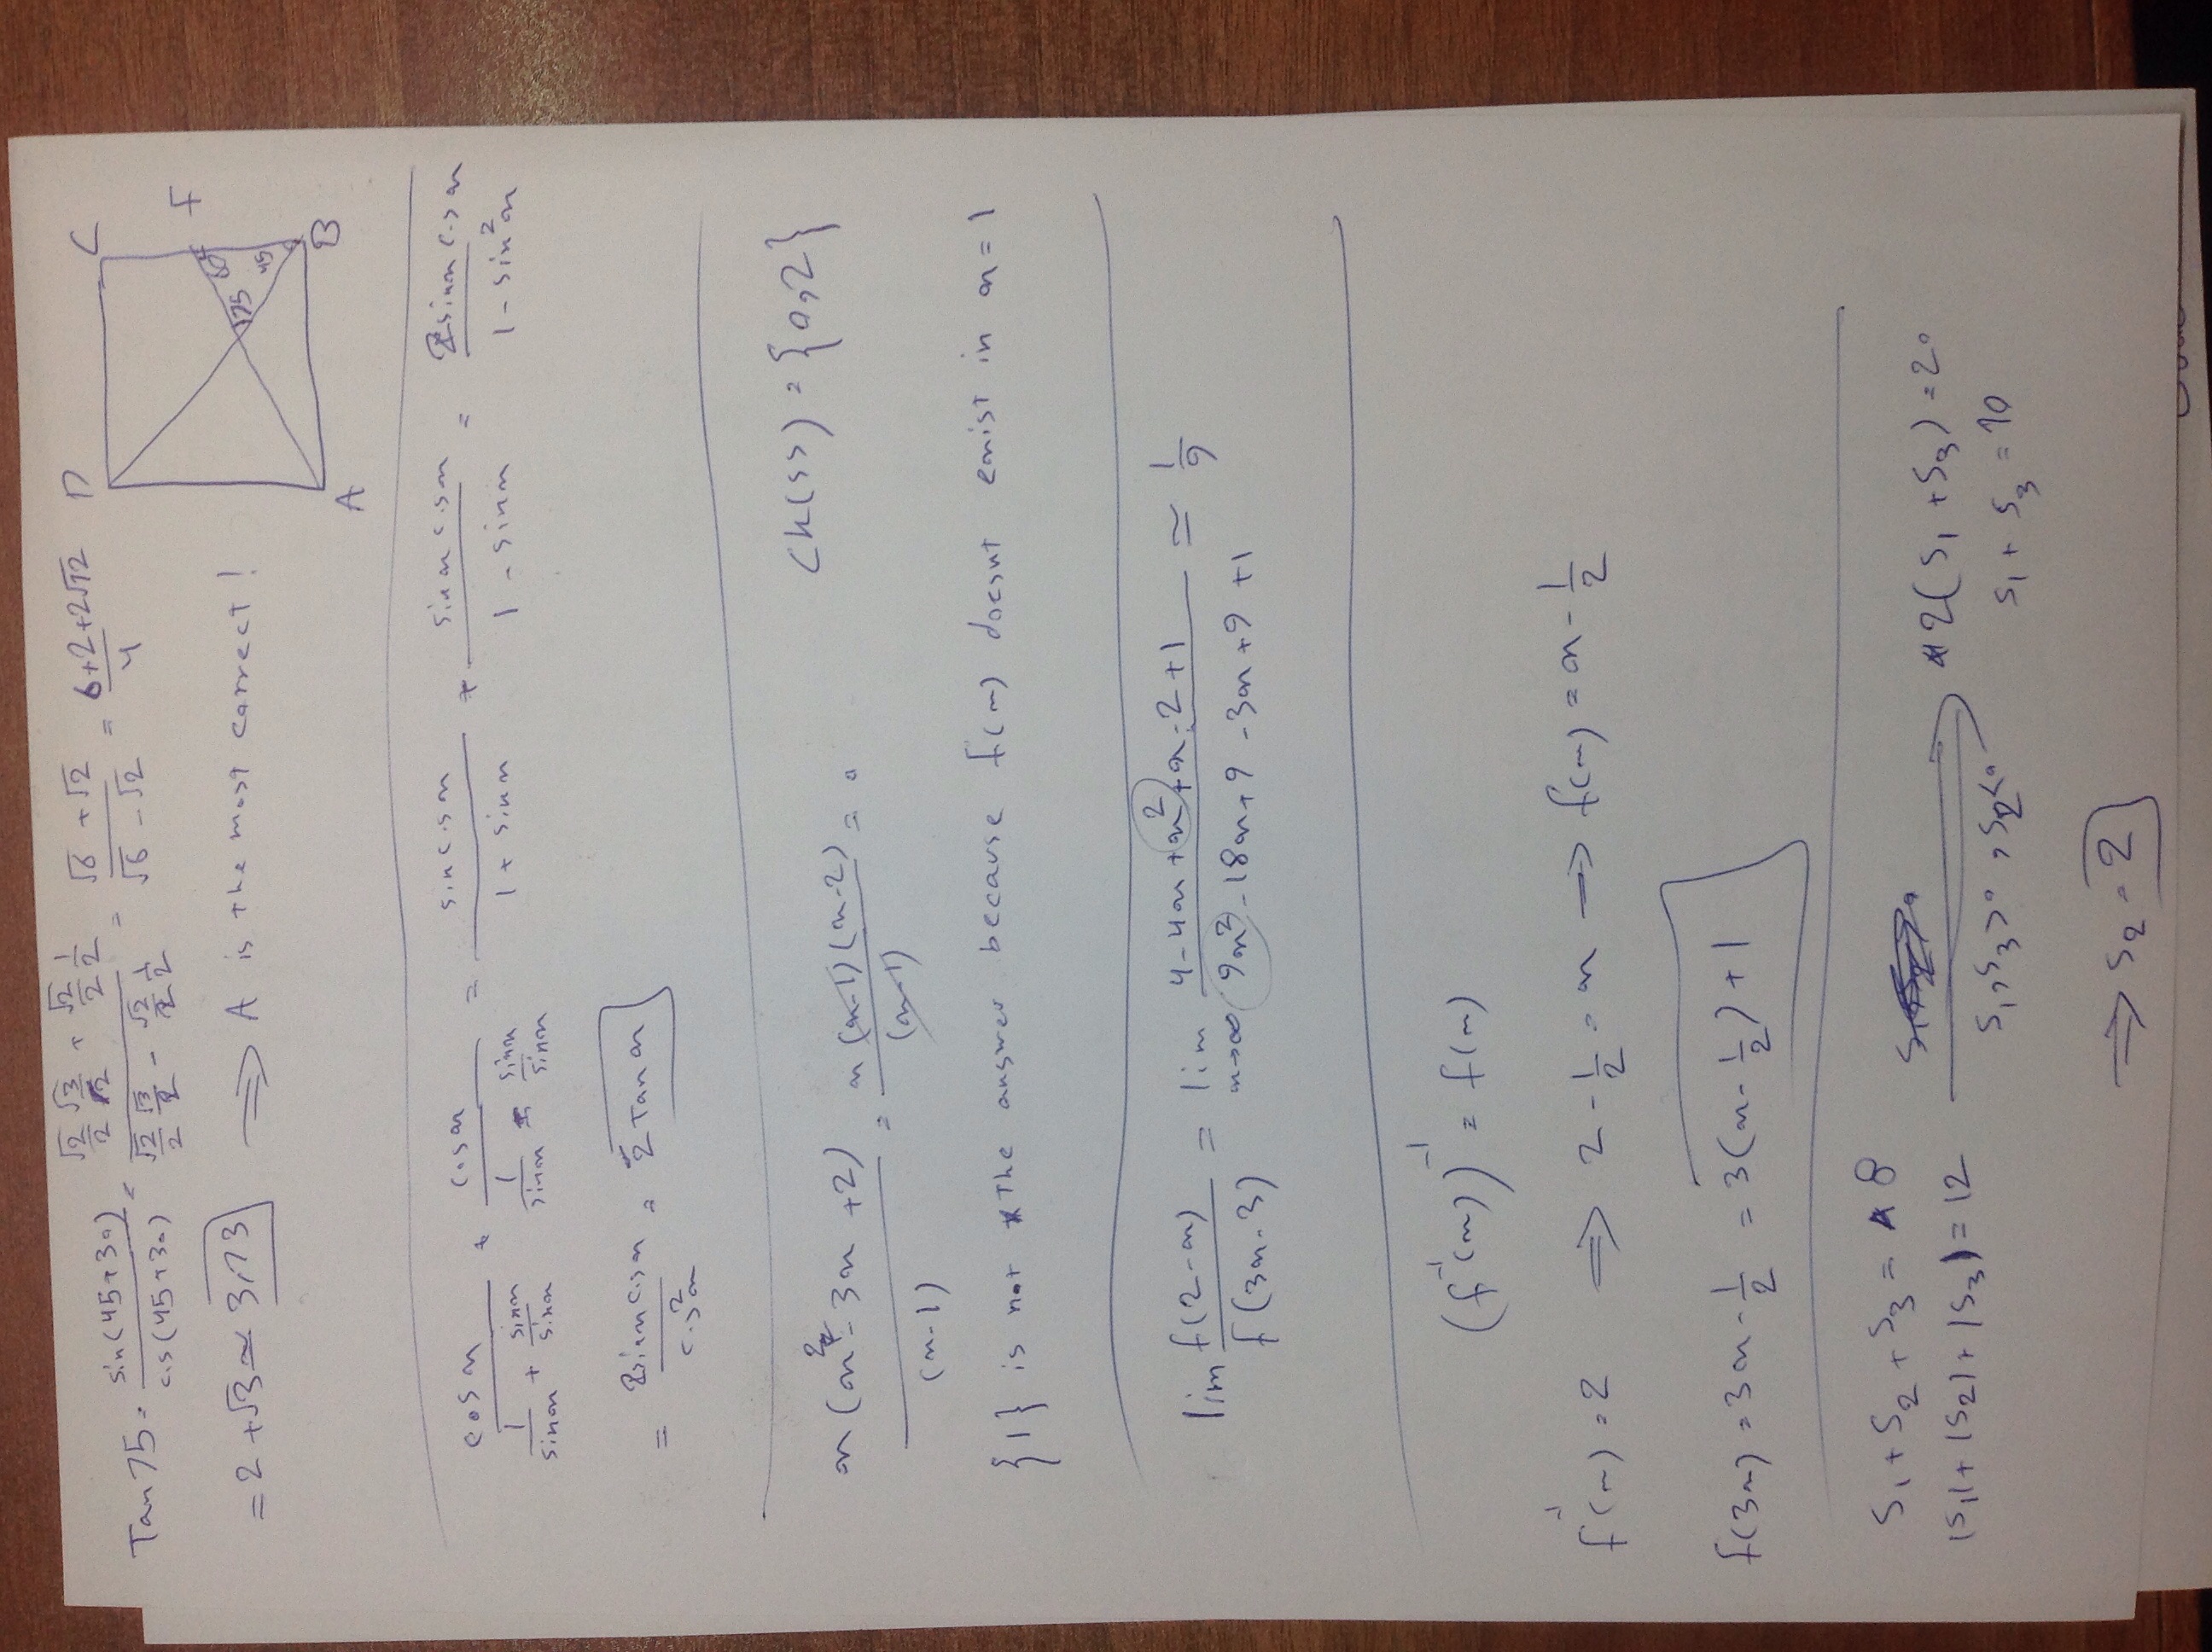 Tan 75 = sin(45+30) / cos(45+30) = (√2/2 √3/2 + √2/2 1/2) / (√2/2 √3/2 - √2/2 1/2) = (√6 + √2) / (√6 - √2) = (6+2+2√12) / 4
= 2+√3 ≃ 3,73 ⟹ A is the most correct!
D C
60 F
75 45
A B
cos x / (1/sinx + sinx/sinx) + cosx / (1/sinx - sinx/sinx) = sinx cosx / (1 + sinx) + sinx cosx / (1 - sinx) = 2sinx cosx / (1 - sin²x)
= 2sinx cosx / cos²x = 2 Tan x
x(x² - 3x + 2) / (x-1) = x(x-1)(x-2) / (x-1) = 0 {0,2}
{1} is not the answer because f(x) doesnt exist in x = 1
lim f(2-x) / f(3x-3) = lim x→∞ (4 - 4x + x² + x - 2 + 1) / (9x² - 18x + 9 - 3x + 9 + 1) ≃ 1/9
(f⁻¹(x))⁻¹ = f(x)
f⁻¹(x) = 2 ⟹ 2 - 1/2 = x → f(x) = x - 1/2
f(3x) = 3x - 1/2 = 3(x - 1/2) + 1
S₁ + S₂ + S₃ = 8
|S₁| + |S₂| + |S₃| = 12 S₁,S₃>0 , S₂<0 ⟹ 2(S₁ + S₃) = 20
S₁ + S₃ = 10
⟹ S₂ = 2